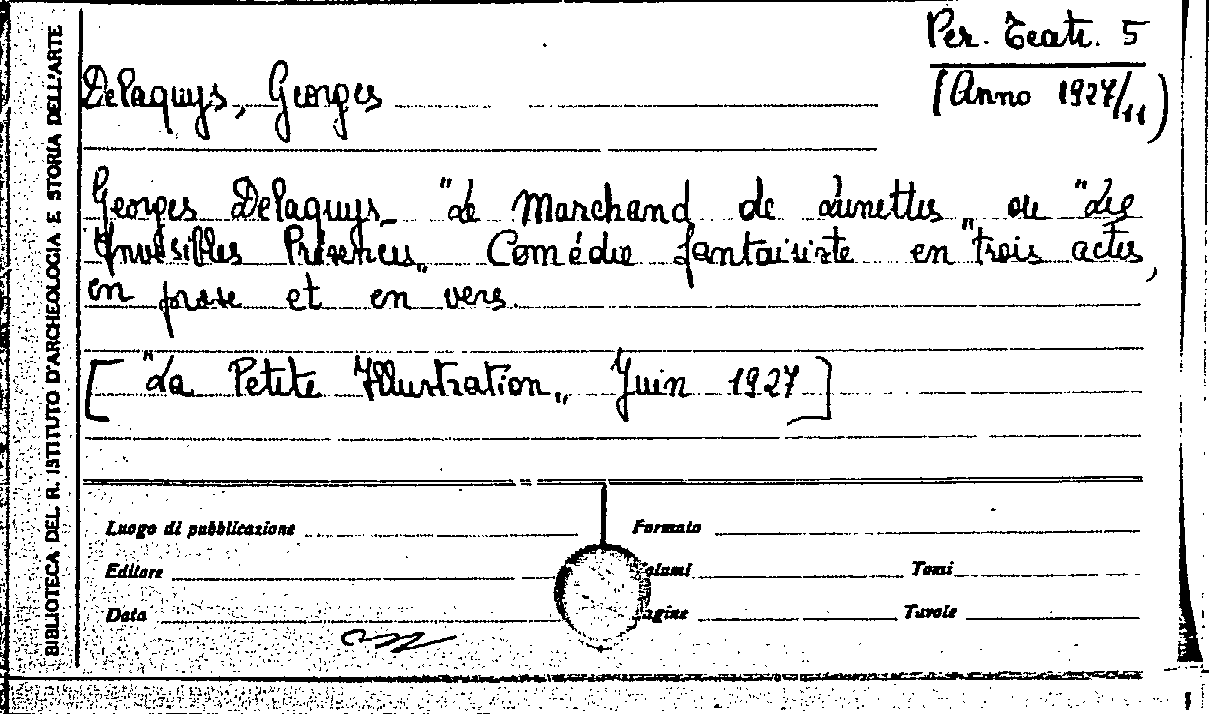 Per. Teatr. 5
(Anno 1927/11)
Delaquys, Georges
Georges Delaquys_ "Le Marchand de Lunettes„ ou "Les
Invisibles Présences„ Comédie fantaisiste en trois actes,
en prose et en vers.
["La Petite Illustration„ Juin 1927]
Luogo di pubblicazione
Formato
Editore
Volumi
Tomi
Data
Pagine
Tavole
BIBLIOTECA DEL R. ISTITUTO D'ARCHEOLOGIA E STORIA DELL'ARTE